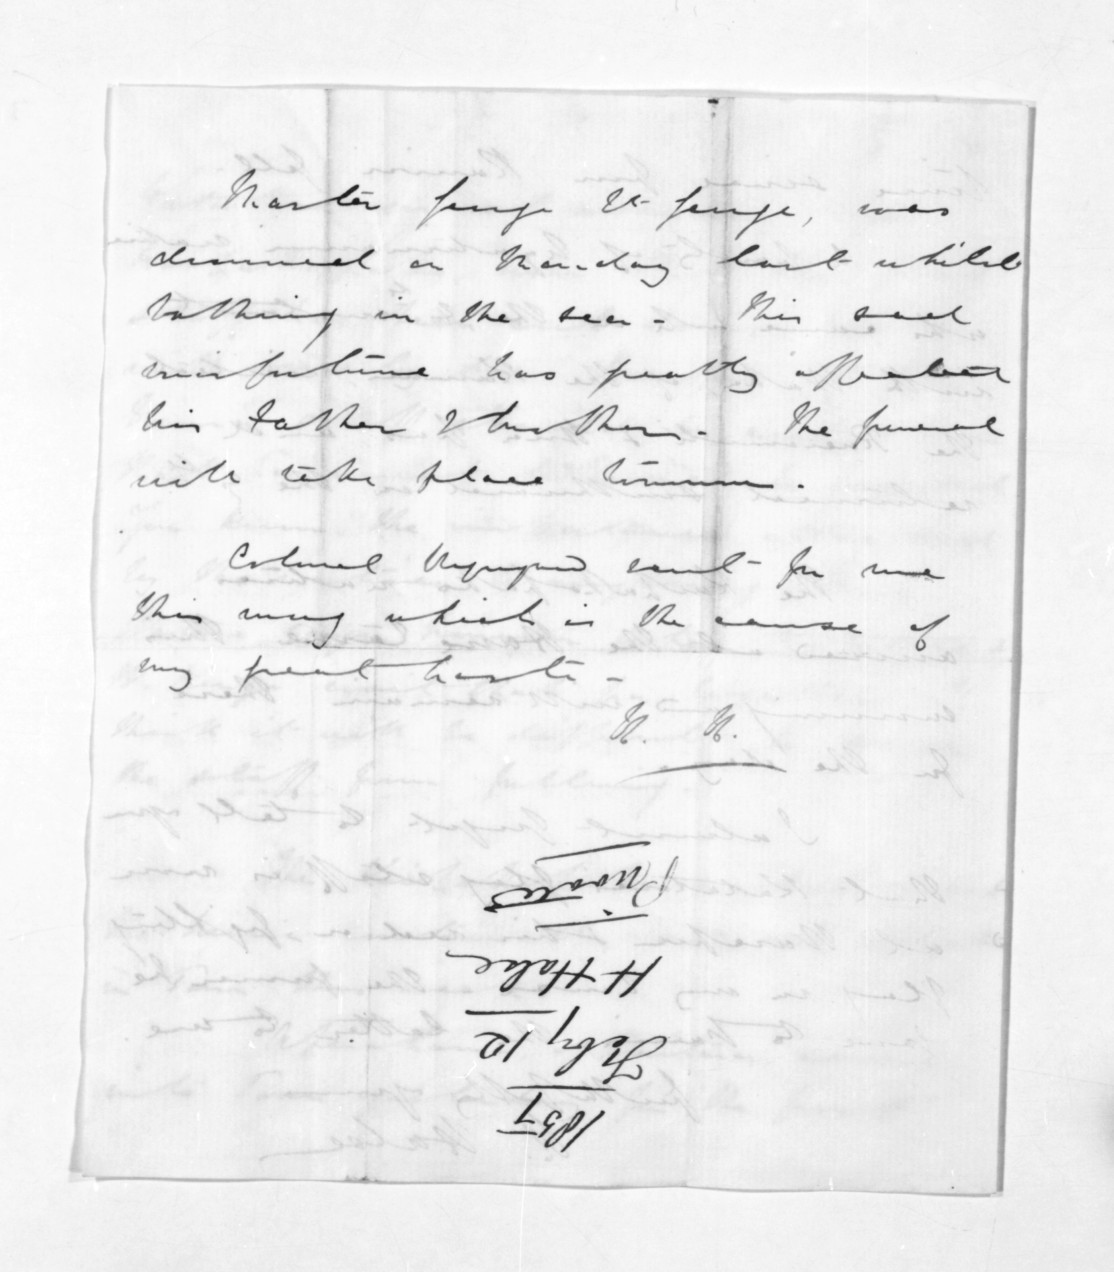 Master George St George, was
drowned on Monday last whilst
bathing in the sea. This sad
misfortune has greatly affected
his Father & brothers. The funeral
will take place
Colonel Wynyard sent for me
this morng which is the cause of
my great haste -
H. H.
1857
Feby 12
H Halse
Private